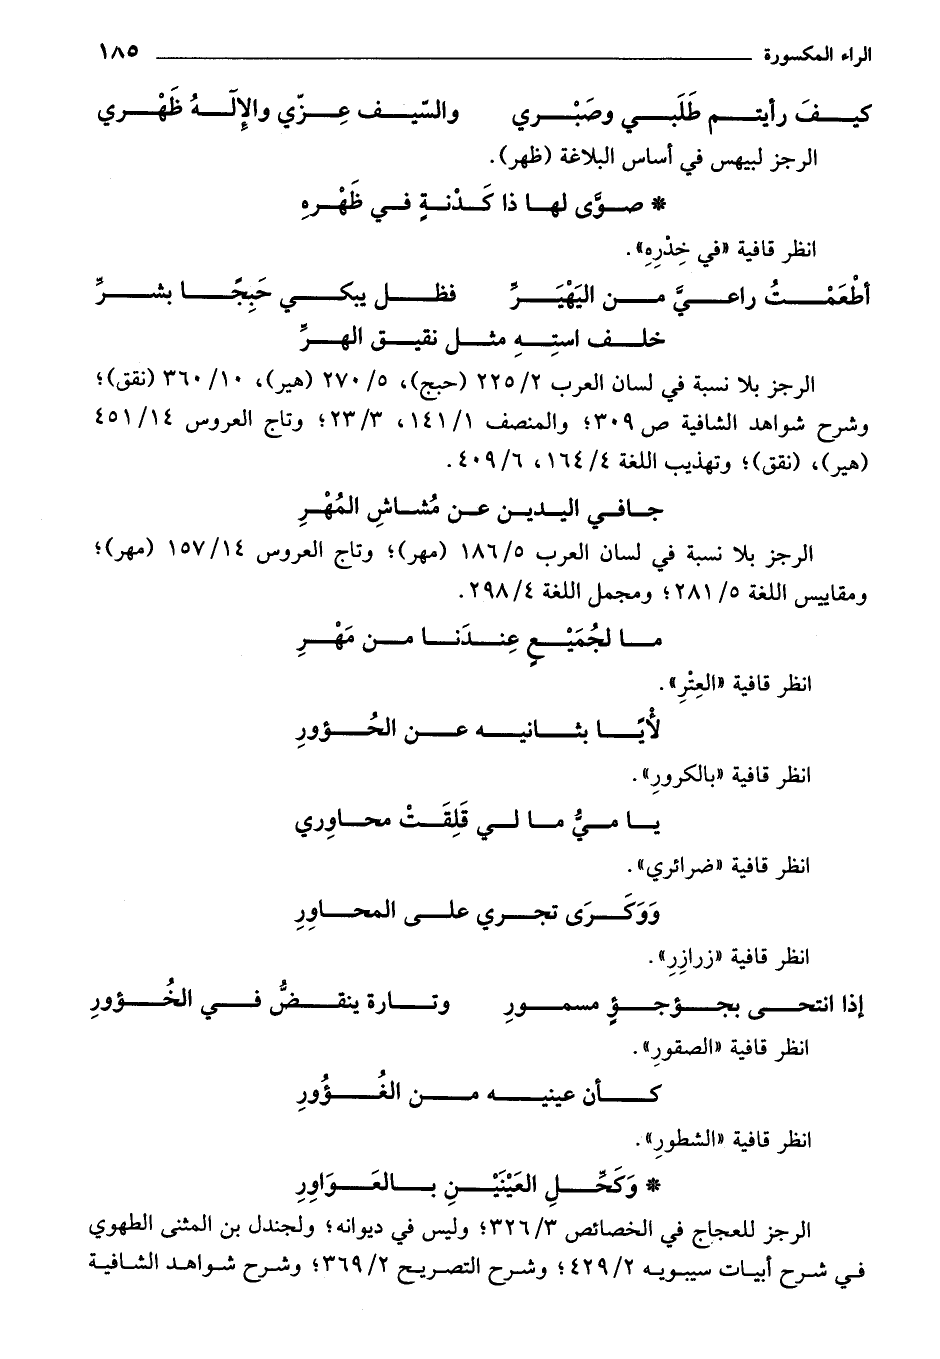 الراء المكسورة ١٨٥
كيفَ رأيتم طَلَبي وصَبْري والسّيف عِزّي والإِلَهُ ظَهْري
الرجز لبيهس في أساس البلاغة (ظهر).
* صوَّى لها ذا كَدْنةٍ في ظَهْرِهِ
انظر قافية «في خِذْرِهِ».
أطْعَمْتُ راعيَّ من اليَهْيَرِّ فظل يبكي حَبِجًا بشرِّ
خلف استِهِ مثل نقيق الهرِّ
الرجز بلا نسبة في لسان العرب ٢/ ٢٢٥ (حبج)، ٥/ ٢٧٠ (هير)، ١٠/ ٣٦٠ (نقق)؛
وشرح شواهد الشافية ص٣٠٩؛ والمنصف ١/ ١٤١، ٣/ ٢٣؛ وتاج العروس ١٤/ ٤٥١
(هير)، (نقق)؛ وتهذيب اللغة ٤/ ١٦٤، ٦/ ٤٠٩.
جافي اليدين عن مُشاشِ المُهْرِ
الرجز بلا نسبة في لسان العرب ٥/ ١٨٦ (مهر)؛ وتاج العروس ١٤/ ١٥٧ (مهر)؛
ومقاييس اللغة ٥/ ٢٨١؛ ومجمل اللغة ٤/ ٢٩٨.
ما لجُمَيْعٍ عِندَنا من مَهْرِ
انظر قافية «العِتْرِ».
لأْيًا بثانيه عن الحُؤورِ
انظر قافية «بالكرورِ».
يا ميُّ ما لي قَلِقَتْ محاوِري
انظر قافية «ضرائري».
وَوَكَرَى تجري على المحاوِرِ
انظر قافية «زرازِرِ».
إذا انتحى بجؤجؤٍ مسمورِ وتارة ينقضُّ في الخُؤورِ
انظر قافية «الصقورِ».
كأن عينيه من الغُؤُورِ
انظر قافية «الشطورِ».
* وَكَحِّلِ العَيْنَيْنِ بالعَوَاوِرِ
الرجز للعجاج في الخصائص ٣/ ٣٢٦؛ وليس في ديوانه؛ ولجندل بن المثنى الطهوي
في شرح أبيات سيبويه ٢/ ٤٢٩؛ وشرح التصريح ٢/ ٣٦٩؛ وشرح شواهد الشافية